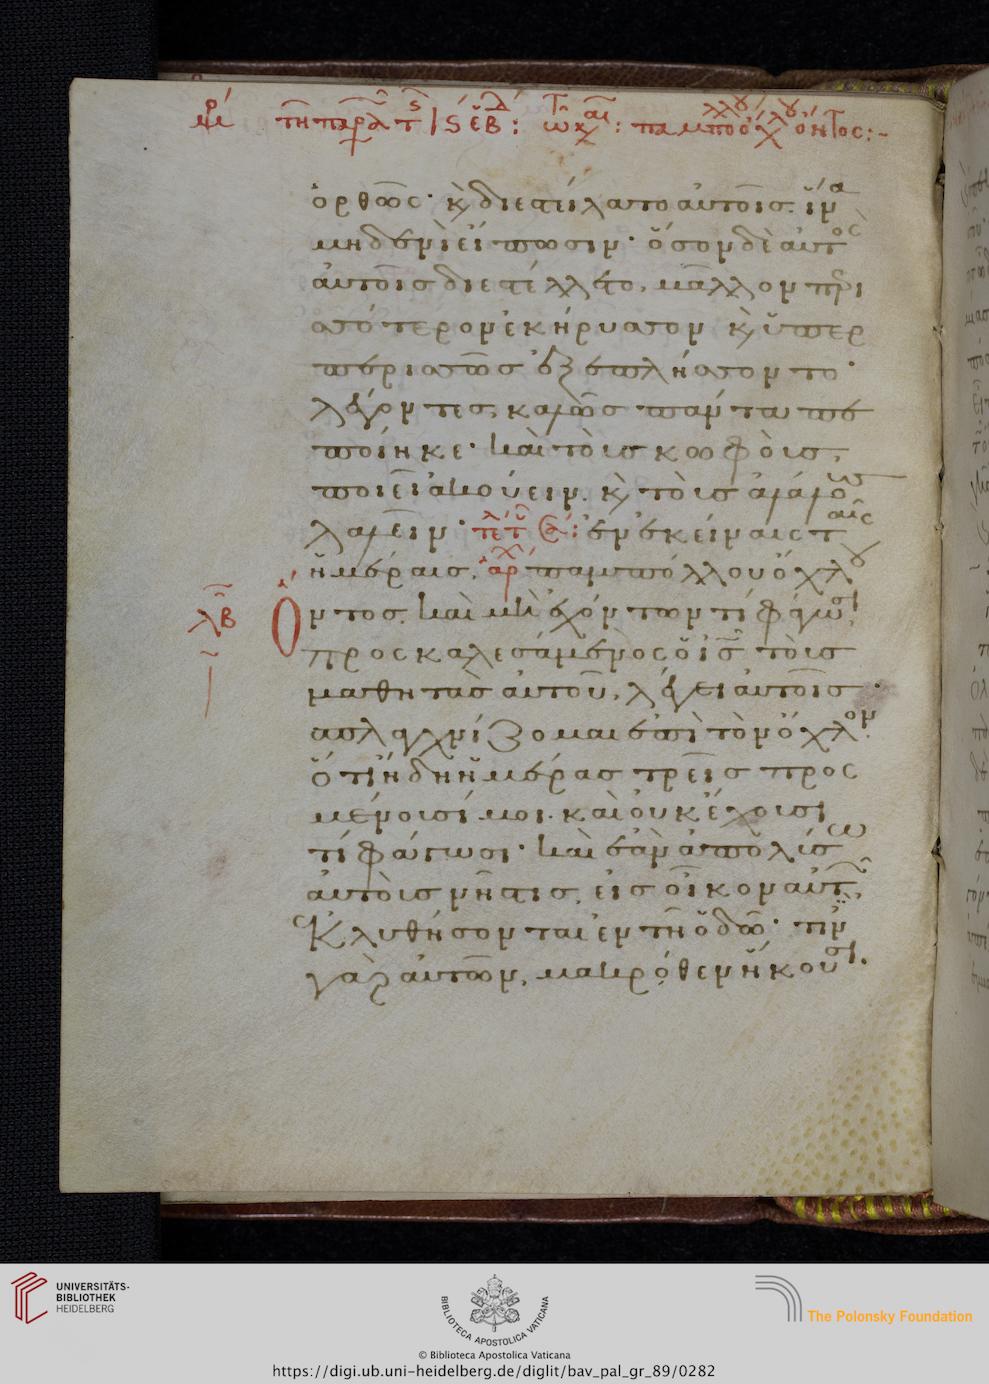 ὀρθῶς· κ̀ διεστείλατο αὐτοῖς. ἵνα
μηδενὶ εἴπωσιν· ὅσον δὲ αὐτὸς
αὐτοῖς διεστέλλετο, μᾶλλον περι
σσότερον ἐκήρυσσον κ̀ ὑπερ
περισσῶς ἐξεπλήσσοντο·
λέγοντες, καλῶς πάντα πε
ποίηκε· καὶ τοὺς κωφοὺς,
ποιεῖ ἀκούειν. κ̀ τοὺς ἀλάλους
λαλεῖν· τελ :ἐν ἐκείναις ταῖς
ἡμέραις, ἀρχ παμπόλλου ὄχλου
λβ Ὄντος. καὶ μὴ ἐχόντων τί φάγωσι,
προσκαλεσάμενος ὁ ις τοὺς
μαθητὰς αὐτοῦ, λέγει αὐτοῖς·
σπλαγχνίζομαι ἐπὶ τὸν ὄχλον·
ὅτι ἤδη ἡμέρας τρεῖς προσ
μένουσί μοι. καὶ οὐκ ἔχουσι
τί φάγωσι· καὶ ἐὰν ἀπολύσω
αὐτοὺς νήστις, εἰς οἶκον αὐτῶν,
Ἐκλυθήσονται ἐν τῇ ὁδῷ· τινὲς
γὰρ αὐτῶν, μακρόθεν ἥκουσι.
UNIVERSITÄTS-
BIBLIOTHEK
HEIDELBERG
BIBLIOTECA APOSTOLICA VATICANA
The Polonsky Foundation
© Biblioteca Apostolica Vaticana
https://digi.ub.uni-heidelberg.de/diglit/bav_pal_gr_89/0282